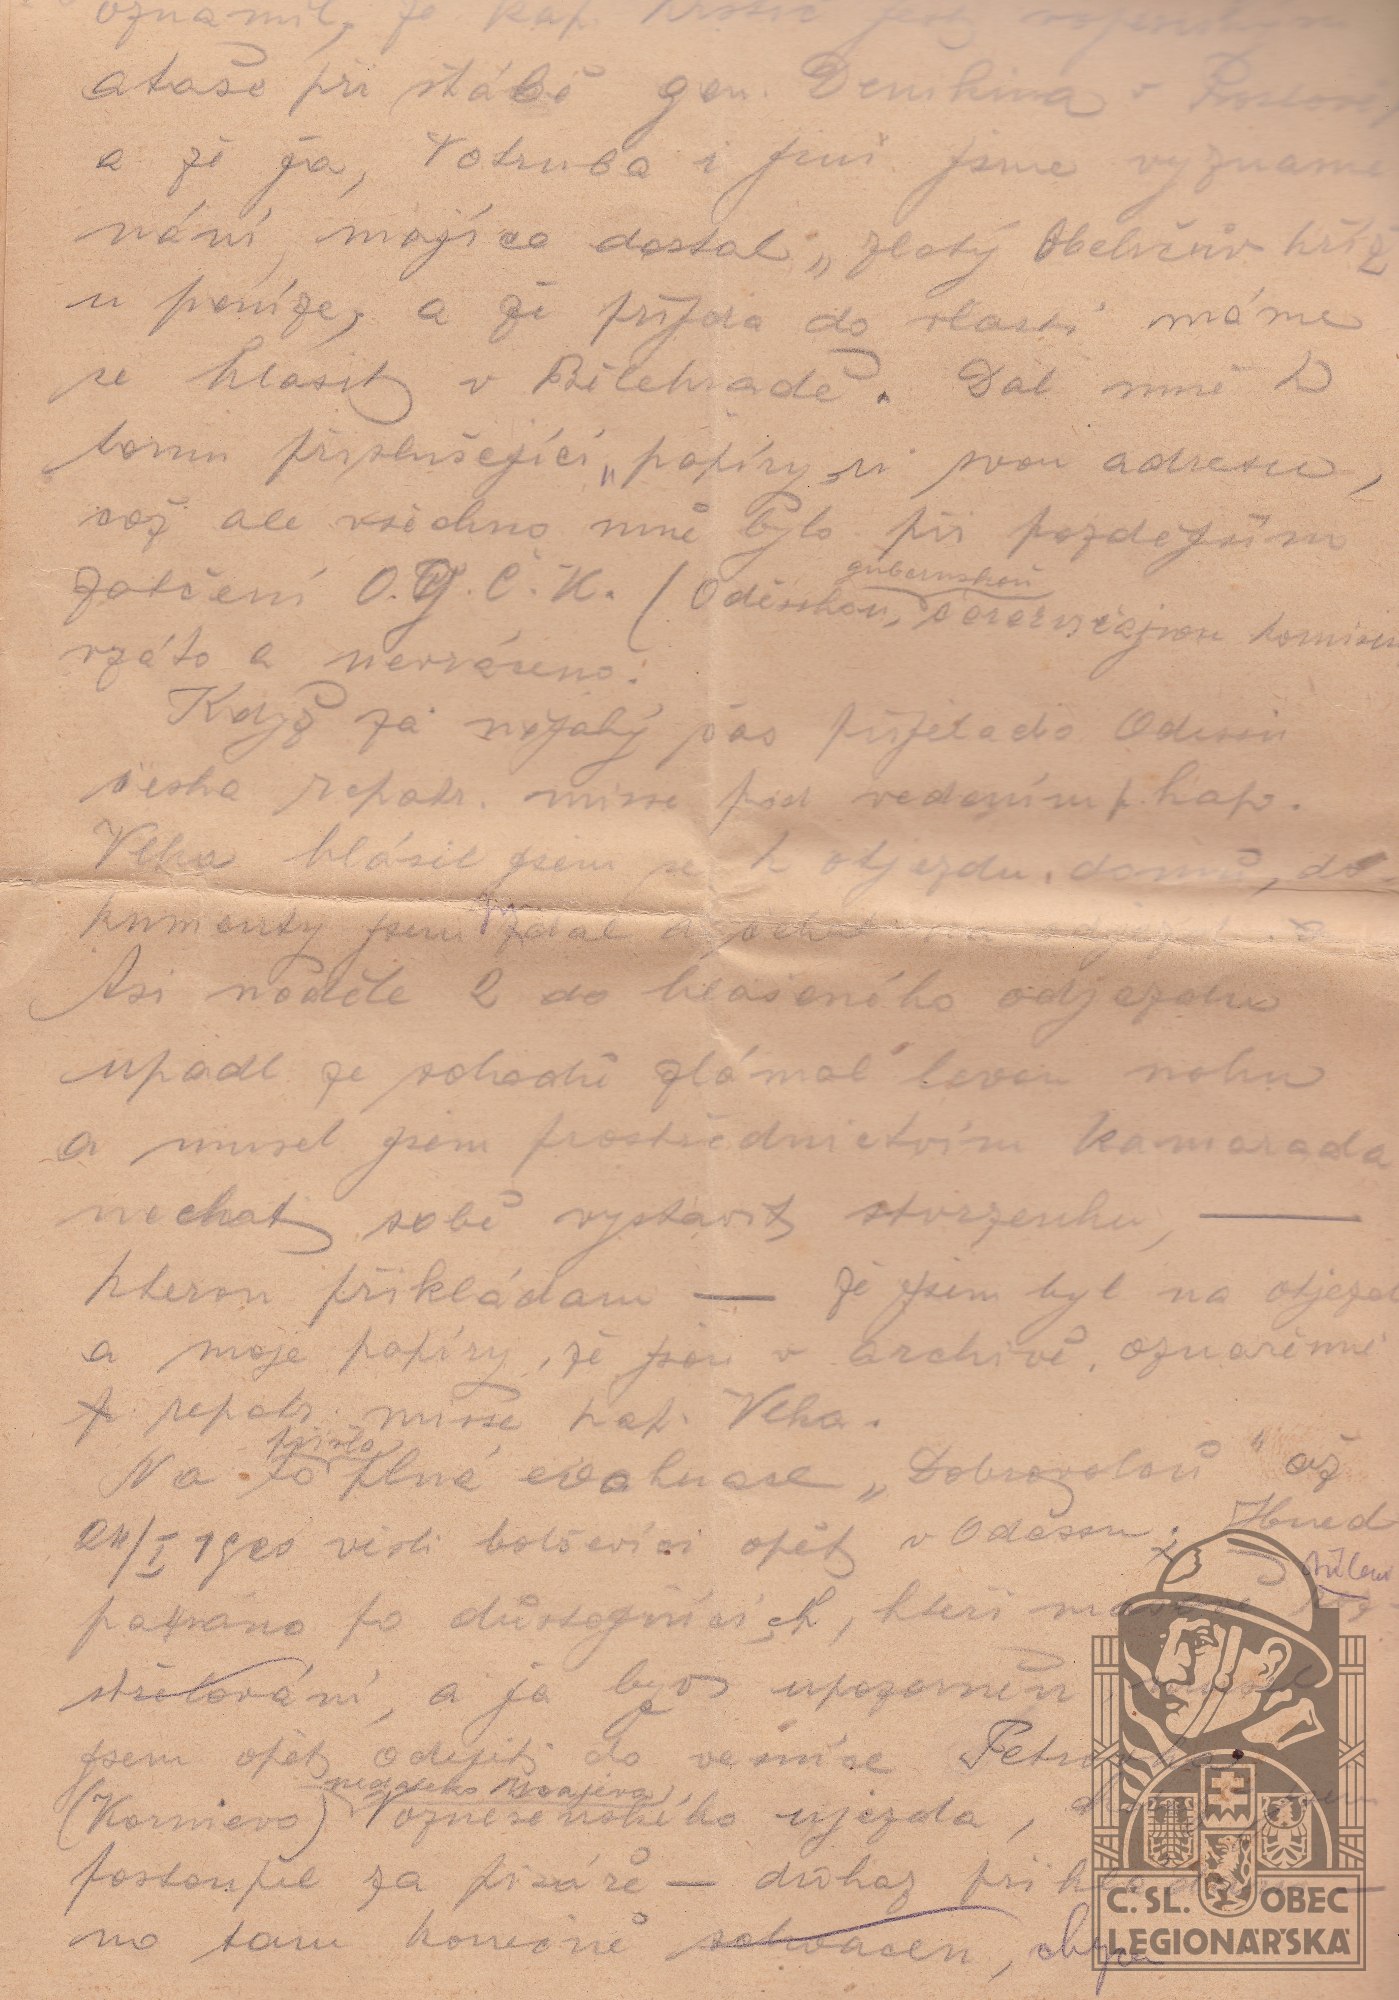 oznámil, že kap. Krstić jest vojenským
ataše při štábě gen. Denikina v Rostově,
a že já, Votruba i jiní jsme vyzname
nání, majíce dostal „zlatý Obeličův kříž
u peníze, a že příjda do vlasti máme
se hlásit v Bělehradě. Dal mně k
tomu příslušející „papíry„ i svou adresu,
což ale všechno mně bylo při pozdějším
zatčení O.G.Č.K. (Oděsskou, gubernskou črezvyčajnou komisí
vzáto a nevráceno.
Když za nějaký čas přijela do Odessi
česká repatr. misse pod vedením p. kap.
Vlka hlásil jsem se k odjezdu domů, do-
kumenty jsem vzdal a
Asi neděle 2 do hlášeného odjezdu
upadl ze schodů zlámal levou nohu
a musel jsem prostřednictvím kamaráda
nechat sobě vystavit stvrzenku, —
kterou přikládám — že jsem byl na odjezd
a moje papíry, že jsou v archivě, označené
repatr. misse kap. Vlka.
Na to přišla plná evakuace „Dobrovolců" až
24/I 1920 vešli bolševici opět v Odessu. Hned
pátráno po důstojnících, kteří
střelování, a já byv upozorněn, musel
jsem opět odejíti do vesnice
(Kornievo) nedaleko Voznesenského ujezda,
postoupil za písaře — důkaz přikládám —
no tam konečně schvácen,
Č. SL. OBEC
LEGIONÁŘSKÁ